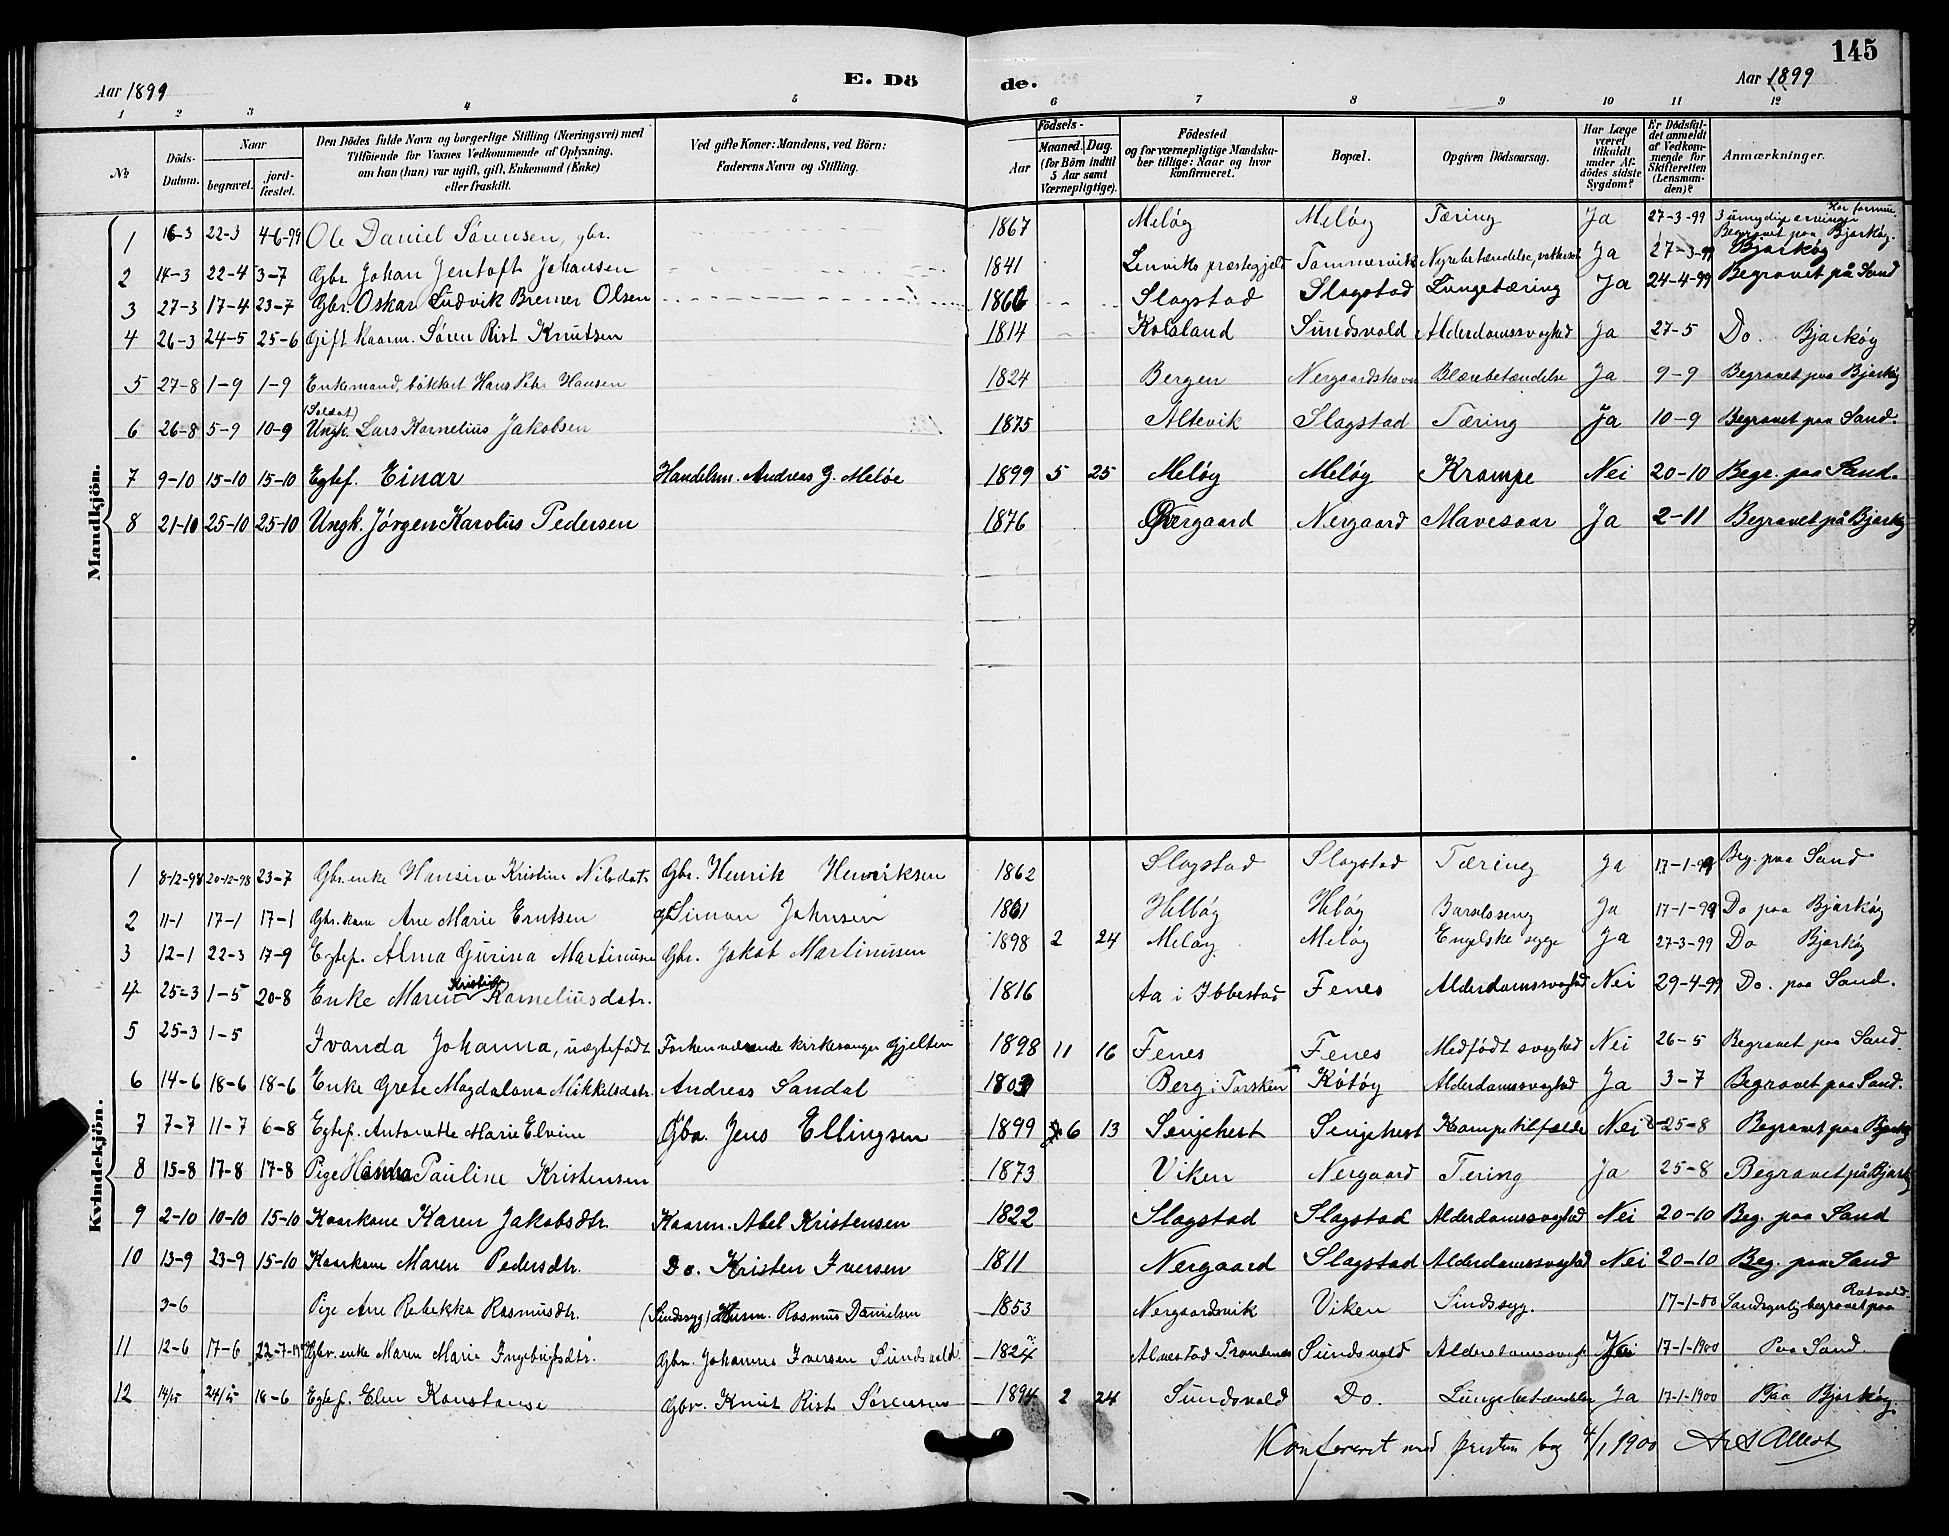 145
Aar 1899 E. Dö de. Aar 1899
1 2 3 4 5 6 7 8 9 10 11 12
No Döds-Datum. Naar begravet. jord-fæstet. Den Dödes fulde Navn og borgerlige Stilling (Næringsvei) med Tilföiende for Voxnes Vedkommende af Oplysning, om han (hun) var ugift, gift, Enkemand (Enke) eller fraskilt. Ved gifte Koner: Mandens, ved Börn: Faderens Navn og Stilling. Födsels- Aar Maaned. Dag. (for Börn indtil 5 Aar samt Værnepligtige). Födested og for værnepligtige Mandskaber tillige: Naar og hvor konfirmeret. Bopæl. Opgiven Dödsaarsag. Har Læge været tilkaldt under Afdödes sidste Sygdom? Er Dödsfaldet anmeldt af Vedkommende for Skifteretten (Lensmanden)? Anmærkninger.
Mandkjön.
1 16-3 22-3 4-6-99 Ole Daniel Sørensen, gbr. 1867 Meløy Meløy Tæring Ja 27-3-99 3 umyndige arvinger Har formue. Begravet paa Bjarkøy.
2 14-3 22-4 3-7 Gbr. Johan Jentoft Johansen 1841 Lenviks præstegjeld Tommervik Nyrebetændelse, Ja 27-3-99 Bjarkøy
3 27-3 17-4 23-7 Gbr. Oskar Ludvik Bremer Olsen 1866 Slagstad Slagstad Lungetæring Ja 24-4-99 Begravet på Sand
4 26-3 24-5 25-6 Gift kaarm. Søren Rist Knutsen 1814 Kolsland Sundsvold Alderdomssvaghed Ja 27-5 Do. Bjarkøy
5 27-8 1-9 1-9 Enkemand, bøkker Hans Petr Hansen 1824 Bergen Nergaardshavn Blærebetændelse Ja 9-9 Begravet paa Bjarkøy
6 26-8 5-9 10-9 (Soldat) Ungk. Lars Kornelius Jakobsen 1875 Altevik Slagstad Tæring Ja 10-9 Begravet paa Sand.
7 9-10 15-10 15-10 Egtef. Einar Handelsm. Andreas G. Meløe 1899 5 25 Meløy Meløy Krampe Nei 20-10 Begr. paa Sand.
8 21-10 25-10 25-10 Ungk. Jørgen Karolius Pedersen 1876 Nergaard Mavesaar Ja 2-11 Begravet på Bjarkøy
Kvindekjön.
1 8-12-98 20-12-98 23-7 Gbr. enke Hansine Kristine Nilsdatr Gbr. Henrik Henriksen 1862 Slagstad Slagstad Tæring Ja 17-1-99 Beg. paa Sand
2 11-1 17-1 17-1 Gbr. kone Ane Marie Erntsen Gbr. Simon Johnsen 1861 Helløy Heløy Barselsseng Ja 17-1-99 Do paa Bjarkøy
3 12-1 22-3 17-9 Egtef. Alma Gurina Martinusen Gbr. Jakob Martinusen 1898 2 24 Meløy Meløy Engelske syge Ja 27-3-99 Do Bjarkøy
4 25-3 1-5 20-8 Enke Maren Kristine Korneliusdatr. 1816 Aa i Ibbestad Fenes Alderdomssvaghed Nei 29-4-99 Do. paa Sand.
5 25-3 1-5 Ivanda Johanna, uægtefødt Forhenværende kirkesanger Gjelten 1898 11 16 Fenes Fenes Medfødt svaghed Nei 26-5 Begravet paa Sand.
6 14-6 18-6 18-6 Enke Grete Magdalena Mikkelsdatr. Andreas Sandal 1803 Berg i Torsken Køtøy Alderdomssvaghed Ja 3-7 Begravet paa Sand.
7 7-7 11-7 6-8 Egtef. Antonette Marie Elvine Gbr. Jens Ellingsen 1899 6 13 Senjehest Senjehest Krampetilfælde Nei 25-8 Begravet paa Bjarkøy
8 15-8 17-8 17-8 Pige Pauline Kristensen 1873 Viken Nergaard Tering Ja 25-8 Begravet på Bjarkøy
9 2-10 10-10 15-10 Kaarkone Karen Jakobsdtr. Kaarm. Abel Kristensen 1822 Slagstad Slagstad Alderdomssvaghed Nei 20-10 Beg. paa Sand
10 13-9 23-9 15-10 Kaarkone Maren Pedersdtr. Do. Kristen Iversen 1811 Nergaard Slagstad Alderdomssvaghed Nei 20-10 Beg. paa Sand
3-6 Pige Ane Rebekka Rasmusdtr. (Sindssyg) Husm. Rasmus Danielsen 1853 Nergaardsvik Viken Sindssyg. 17-1-00 Sandsynlig begravet paa Rotvold.
11 12-6 17-6 22-7 Gbr. enke Maren Marie Ingebrigtsdtr. Gbr. Johannes Iversen Sundsvold 1824 Trondenes Sundsvold Nei 17-1-1900 Paa Sand.
12 14/5 24/5 18-6 Egtef. Elen Konstanse Gbr. Knut Rist Sørensen 1894 2 24 Sundsvold Do. Lungebetændelse Ja 17-1-1900 Paa Bjarkøy.
Konfereret med prestens bog 4/1 1900